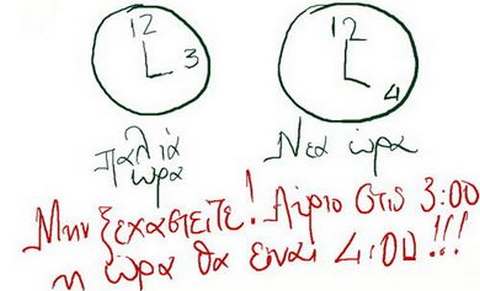 12
3
12
4
παλιά
ώρα
Νεα ώρα
Μην ξεχαστείτε! Αύριο στις 3:00
η ώρα θα είναι 4:00!!!